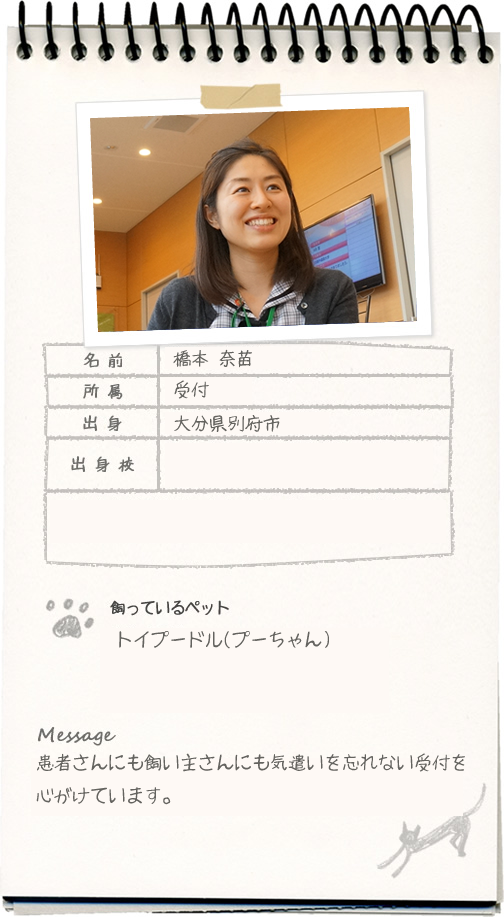 名前 橋本 奈苗
所属 受付
出身 大分県別府市
出身校
飼っているペット
トイプードル(プーちゃん)
Message
患者さんにも飼い主さんにも気遣いを忘れない受付を
心がけています。